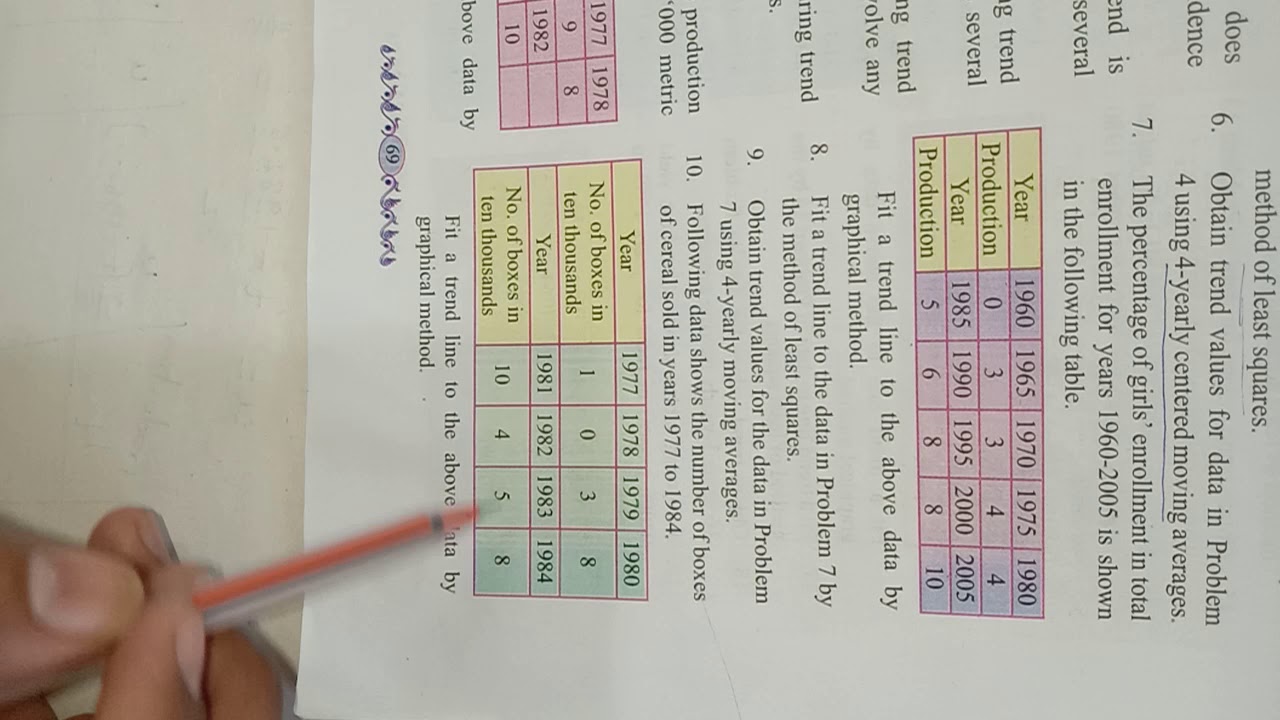 does
dence
end is
several
ng trend
several
ng trend
volve any
ring trend
s.
production
'000 metric
1977 1978
9 8
1982
10
bove data by
69
method of least squares.
6. Obtain trend values for data in Problem
4 using 4-yearly centered moving averages.
7. The percentage of girls' enrollment in total
enrollment for years 1960-2005 is shown
in the following table.
Year 1960 1965 1970 1975 1980
Production 0 3 3 4 4
Year 1985 1990 1995 2000 2005
Production 5 6 8 8 10
Fit a trend line to the above data by
graphical method.
8. Fit a trend line to the data in Problem 7 by
the method of least squares.
9. Obtain trend values for the data in Problem
7 using 4-yearly moving averages.
10. Following data shows the number of boxes
of cereal sold in years 1977 to 1984.
Year 1977 1978 1979 1980
No. of boxes in
ten thousands 1 0 3 8
Year 1981 1982 1983 1984
No. of boxes in
ten thousands 10 4 5 8
Fit a trend line to the above data by
graphical method.